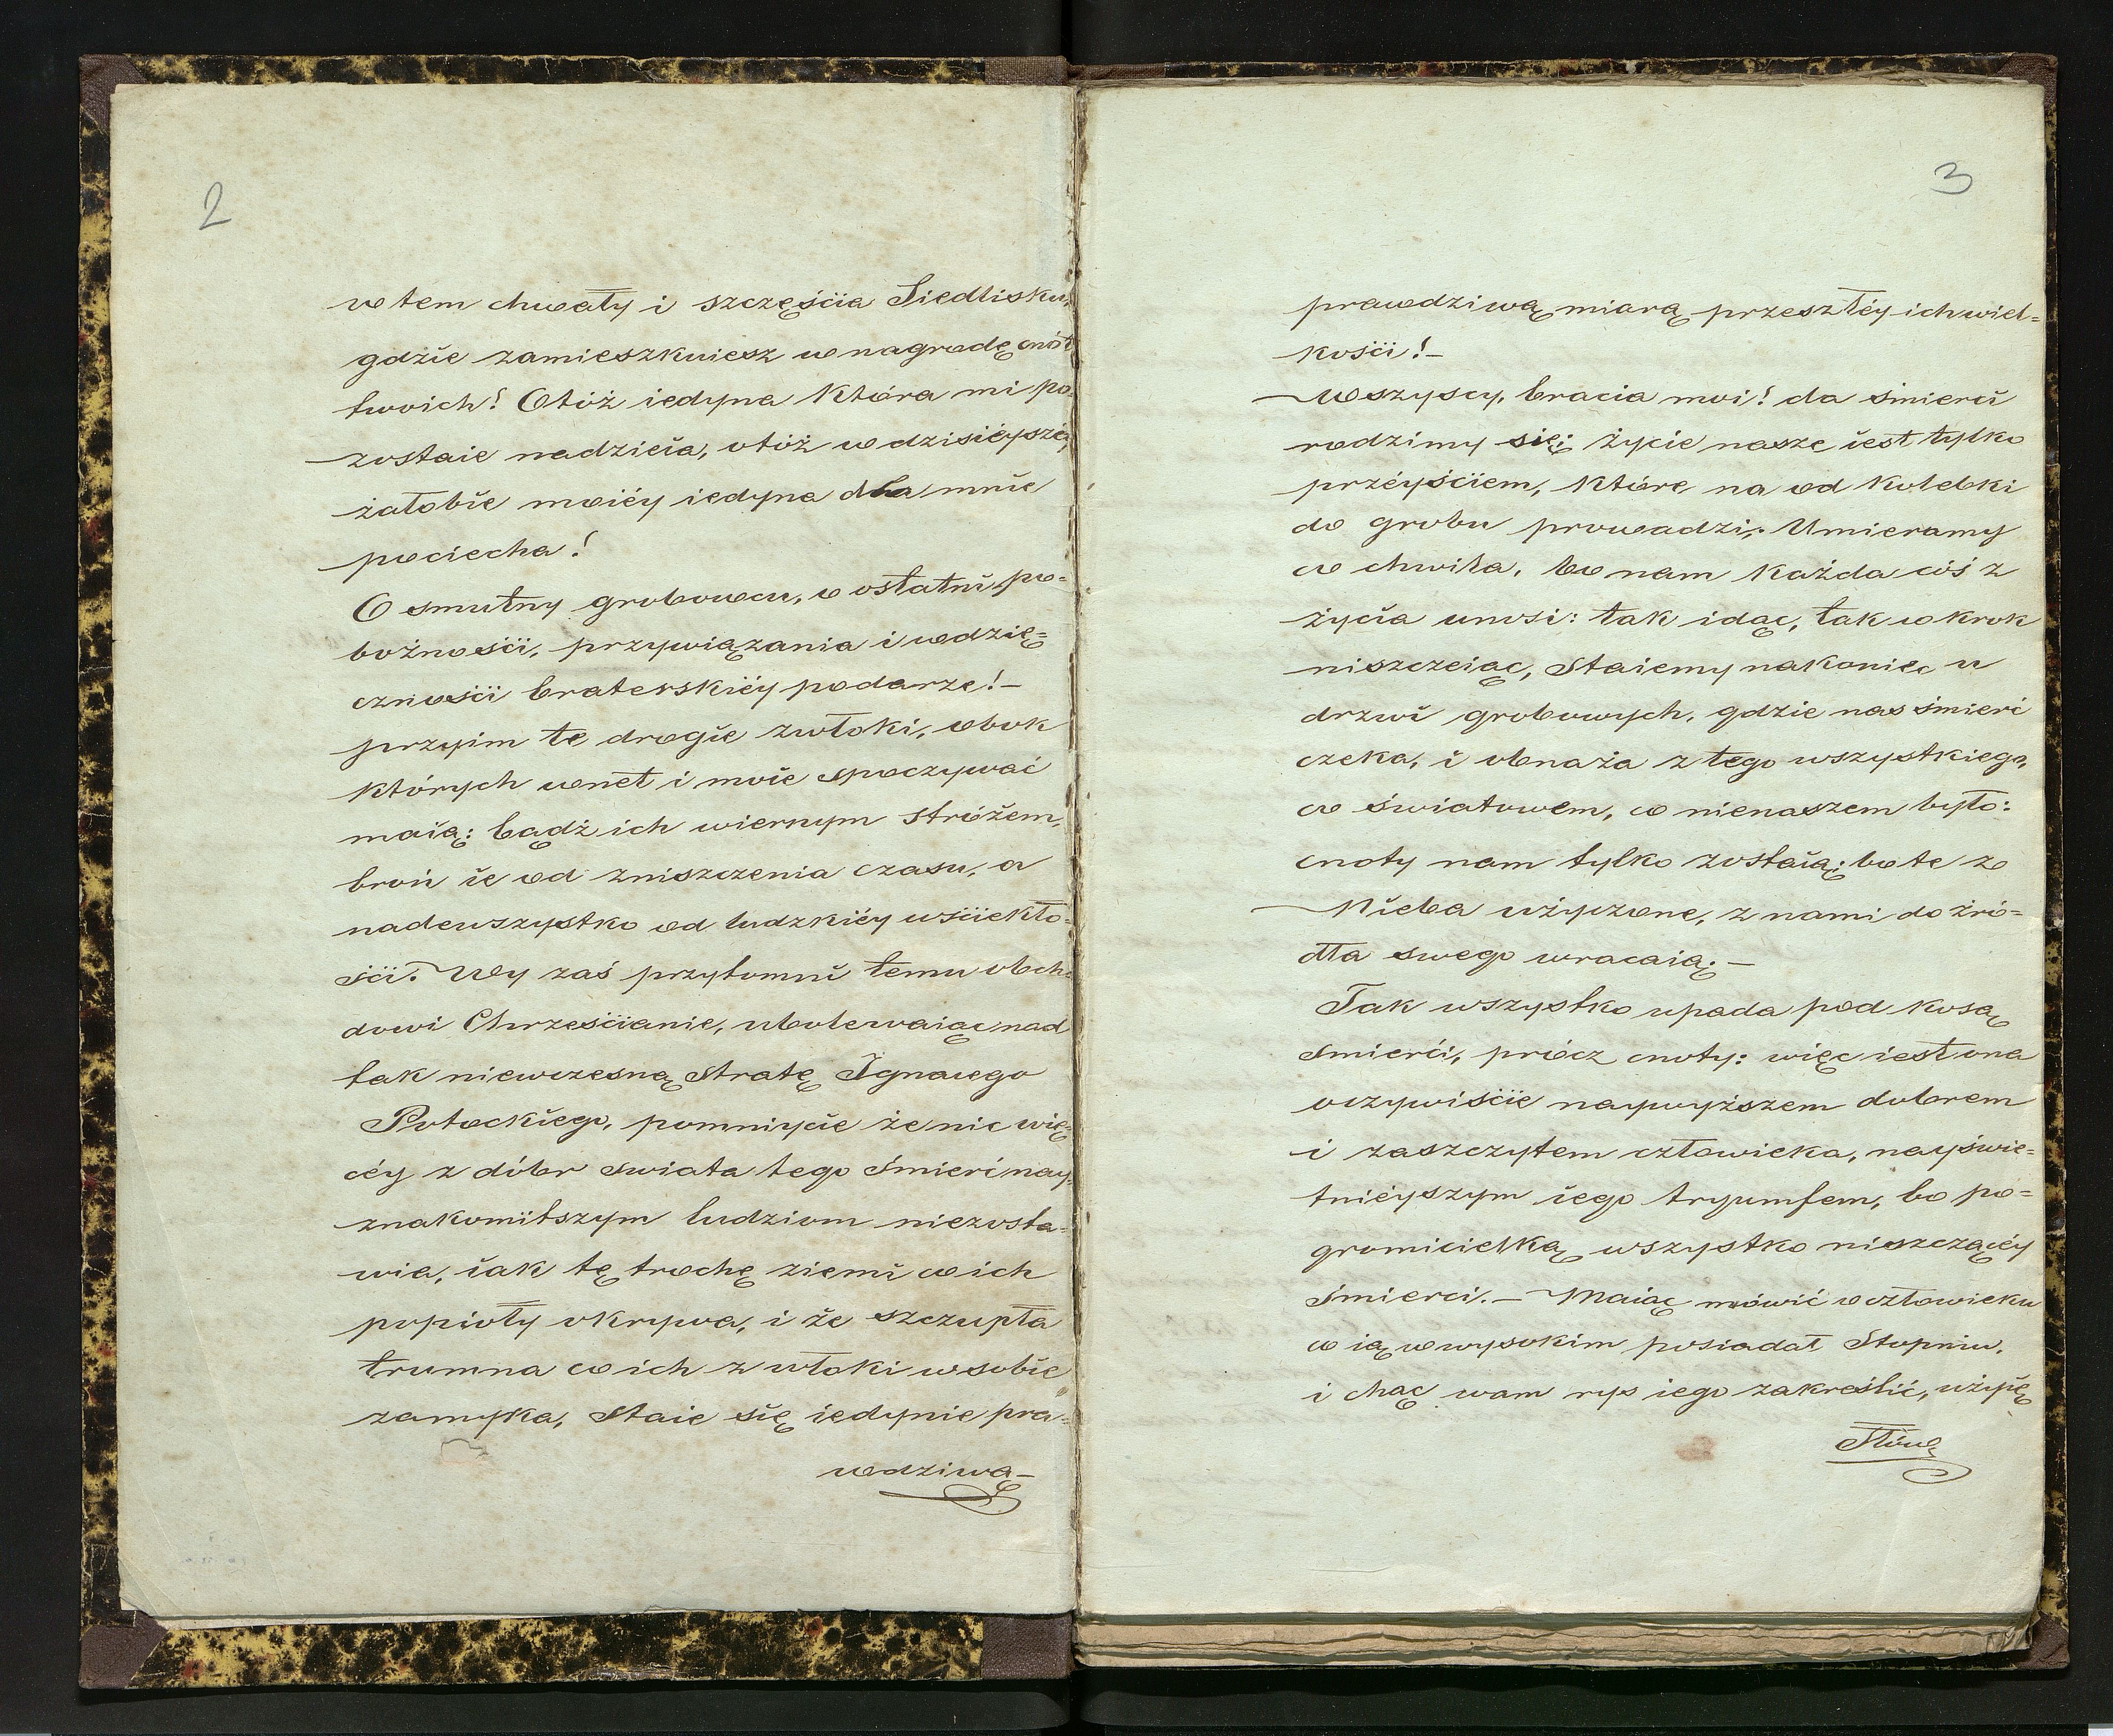 2
w tem chwały i szczęściia Siedlisku,
gdzie zamieszkuiesz w nagrodę cnót
twoich! Otóż iedyna która mi po
zostaie nadzieia, otóż w dzisiéyszéy
żałobie moiéy iedyna dla mnie
pociecha!
O smutny grobowcu, o ostatni po=
bożności, przywiązania i wdzię=
czności braterskiéy podarze!-
przyim te drogie zwłoki, obok
których wnet i moie spoczywać
maią: bądź ich wiernym stróżem,
broń ie od zniszczenia czasu, a
nadewszystko od ludzkiéy wściekło=
ści. Wy zaś przytomni temu obcho
dowi Chrześciianie, ubolewaiąc nad
tak niewczesną stratę Ignacego
Potockiego, pomniycie że nic wię=
céy z dóbr świata tego śmierć nay=
znakomitszym ludziom niezosta=
wia, iak tę trochę ziemi co ich
popioły okrywa, i że szczupła
trumna co ich zwłoki w sobie
zamyka, staie się iedynie pra=
wdziwą-
3
prawdziwą miarą przeszłéy ich wiel=
kości!-
Wszyscy, bracia moi! da śmierci
rodzimy się; życie nasze iest tylko
przéyściem, które na od kolebki
do grobu prowadzi; Umieramy
co chwila, bo nam każda cóś z
życia unosi: tak idąc, tak co krok
niszczeiąc, staiemy nakoniec u
drzwi grobowych, gdzie nas śmierć
czeka, i obnaża z tego wszystkiego,
co światowem, co nienaszem było:
cnoty nam tylko zostaią; bo te z
Nieba użyczone, z nami do źró=
dła swego wracaią;-
Tak wszystko upada pod kosą
śmierci, prócz cnoty: więc iest ona
oczywiście naywyższem dobrem
i zaszczytem człowieka, nayświe=
tniéyszym iego tryumfem, bo po=
gromicielką wszystko niszczącéy
śmierci.- Maiąc mówić o człowieku
co ią w wysokim posiadał stopniu,
i chcąc wam rys iego zakreślić, użyię
Słów